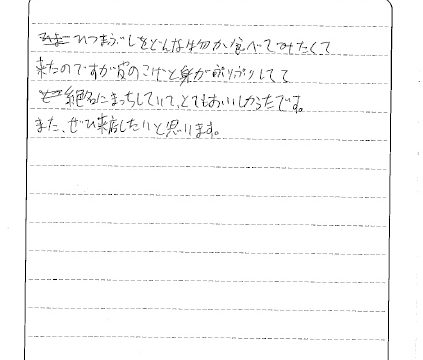 ひつまぶしをどんな物か食べてみたくて
来たのですが皮のこげと身がパリパリしてて
絶妙にまっちしていて、とてもおいしかったです。
また、ぜひ来店したいと思います。